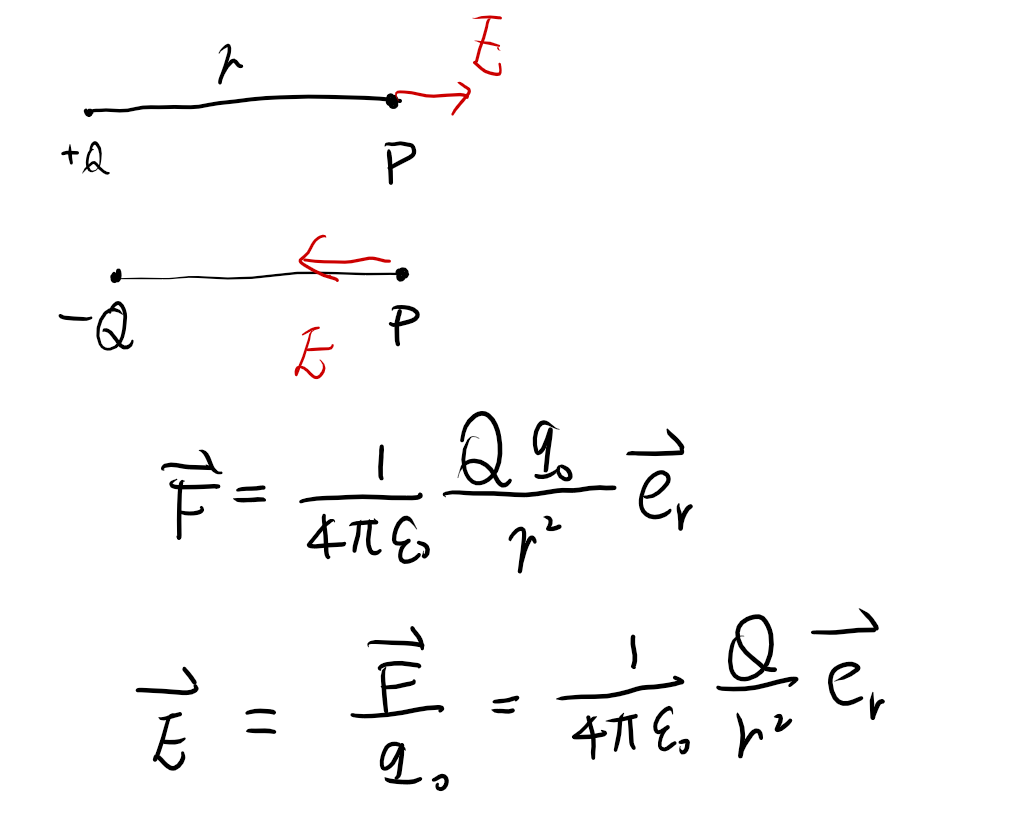 r E
+Q P
-Q P
E
\vec{F} = \frac{1}{4\pi\varepsilon_0} \frac{Q q_0}{r^2} \vec{e}_r
\vec{E} = \frac{\vec{F}}{q_0} = \frac{1}{4\pi\varepsilon_0} \frac{Q}{r^2} \vec{e}_r